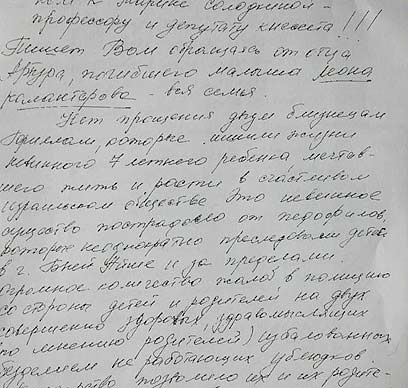 Марине Солодкиной -
профессору и депутату кнессета!!!
Пишет Вам обращаясь от отца
Артура, погибшего малыша Леона
Калантарова - вся семья.
Нет прощения двум близнецам
которые лишили жизни
невинного 7 летнего ребенка мечтав-
шего жить и расти в счастливом
израильском обществе Это невинное
существо пострадало от педофилов,
которые неоднократно преследовали детей
в г. Бней Аише и за пределами.
огромное количество жалоб в полицию
со стороны детей и родителей на двух
совершенно здоровых, здравомыслящих
(по мнению родителей) избалованных
бездельем не работающих ублюдков.
позволило их и их родите-